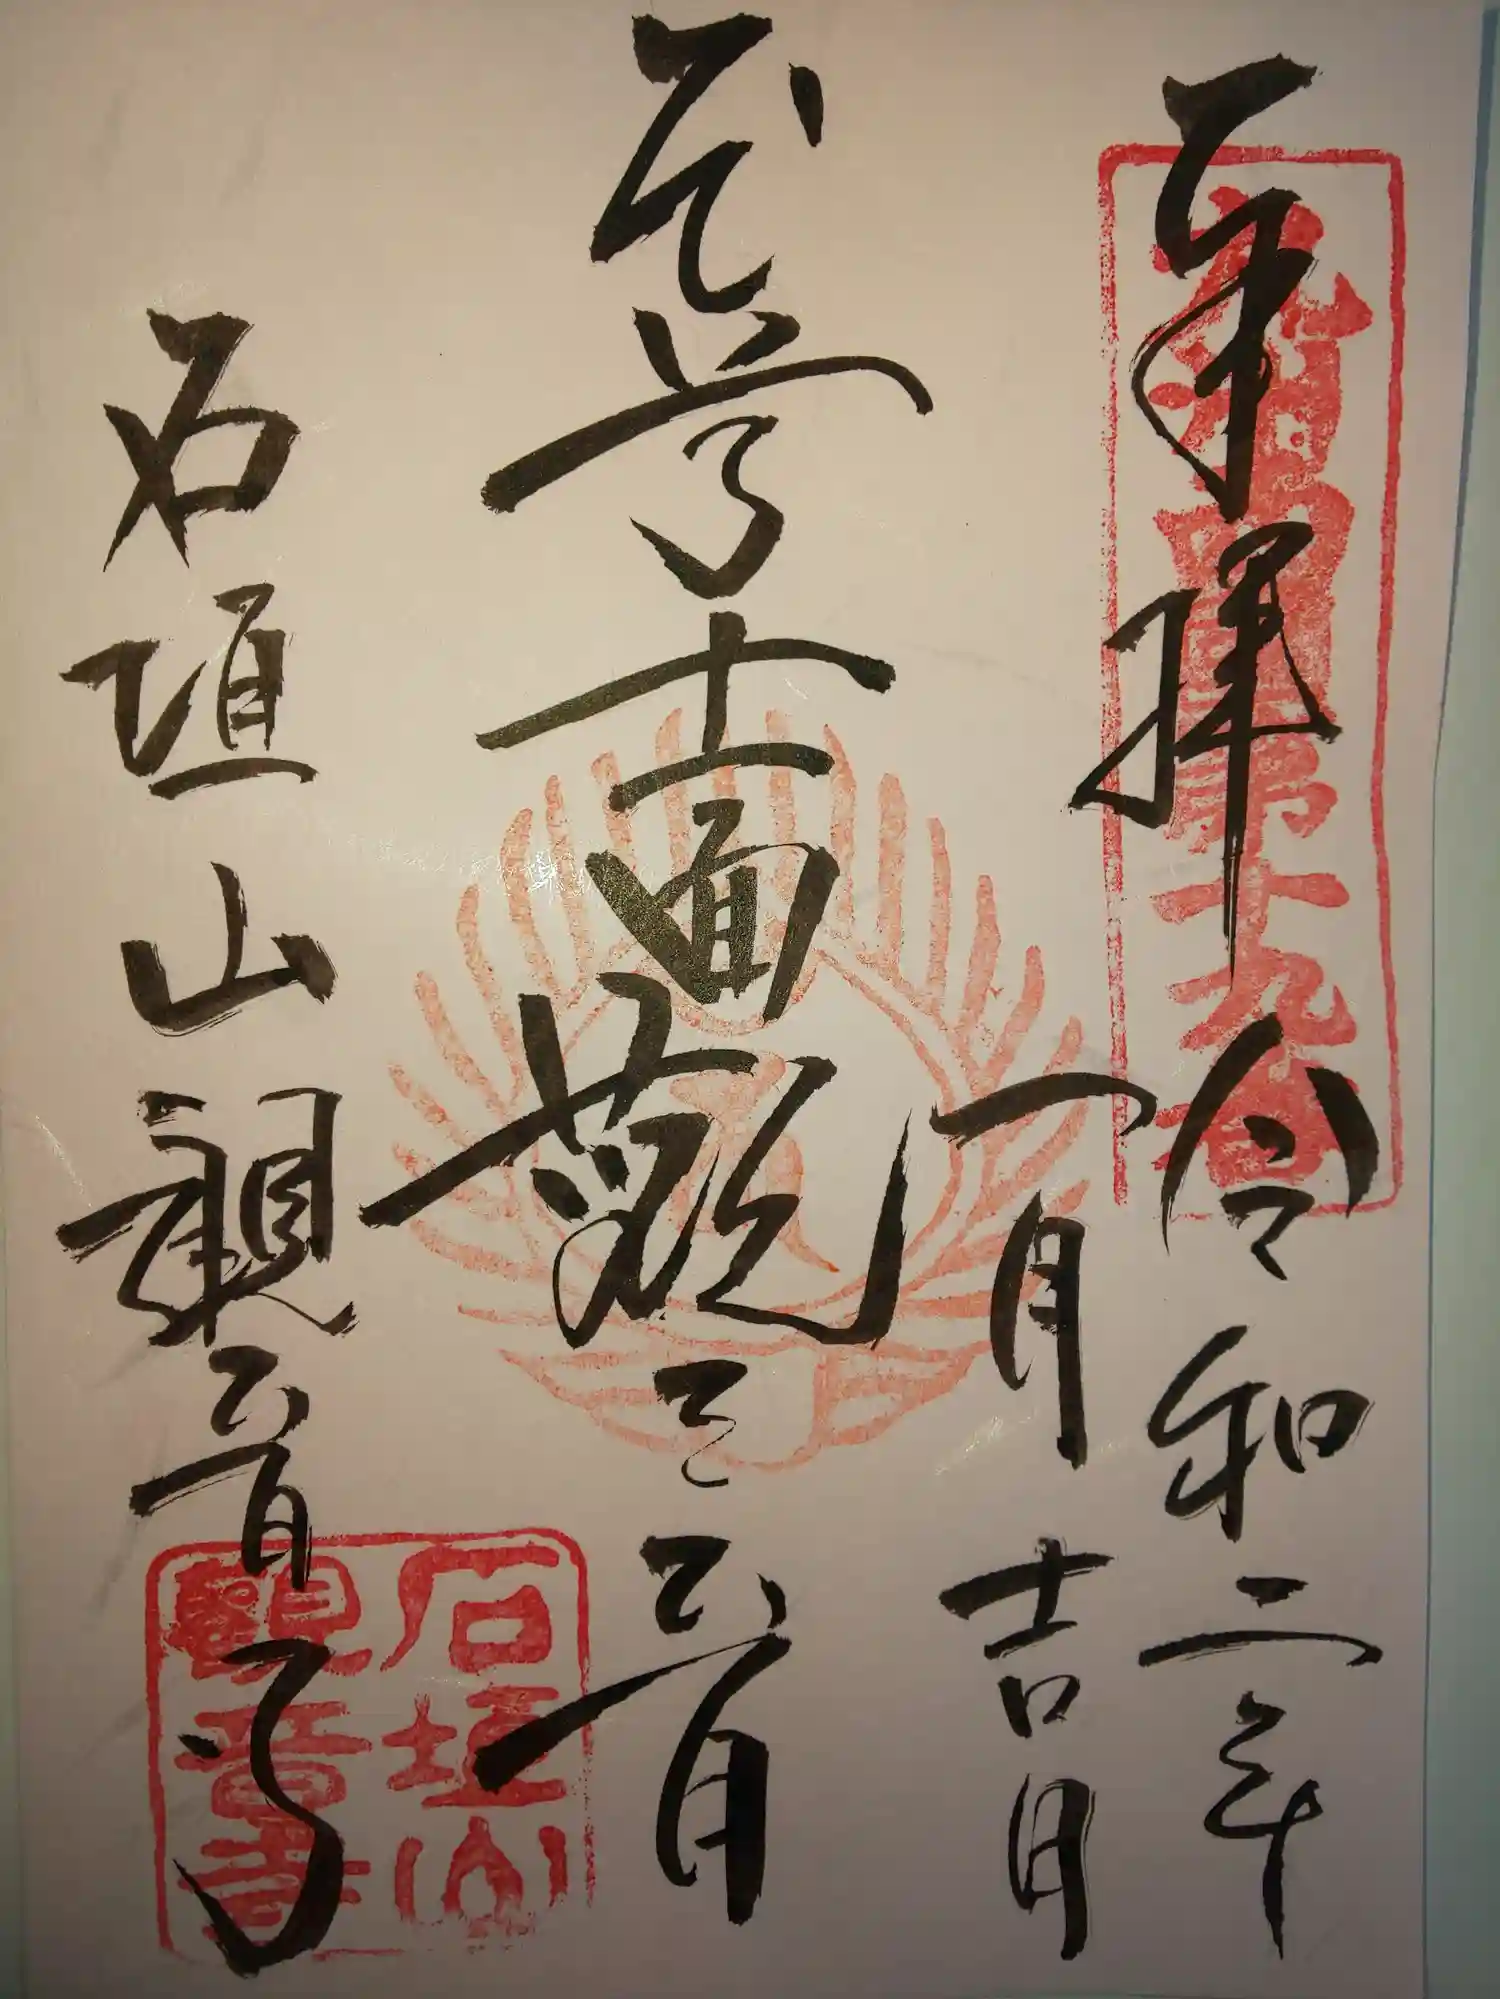 奉拝
九州西国第十九番
令和二年
一月吉日
本尊十一面観世音
石垣山観音寺
石垣山
観音寺